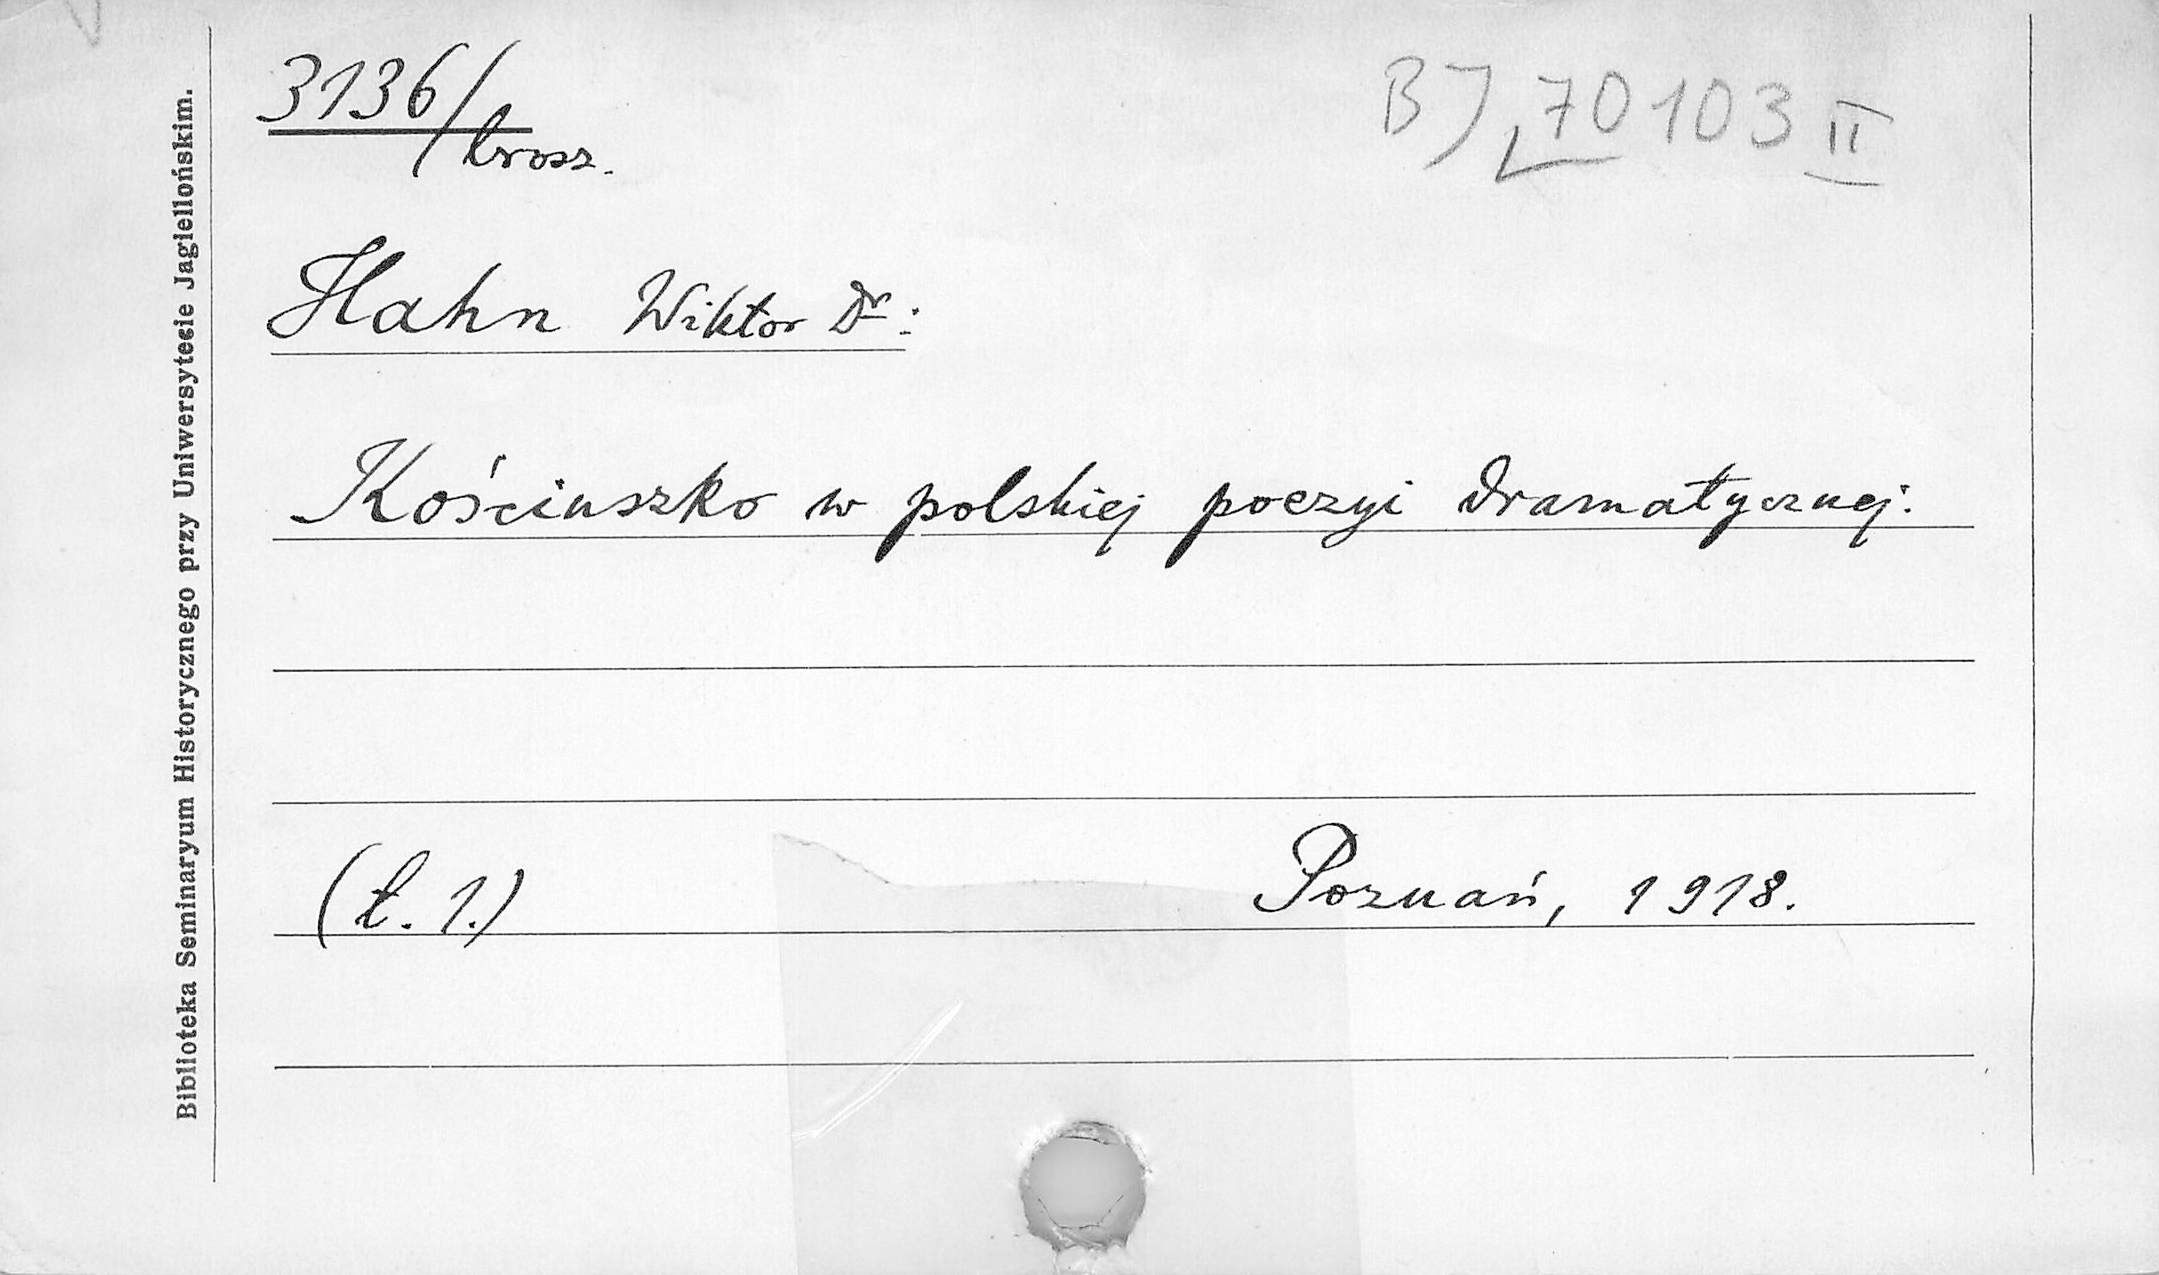 3136/brosz.
BJ 70103 II
Hahn Wiktor Dr.:
Kościuszko w polskiej poezyi dramatycznej.
(t. 1.) Poznań, 1918.
Biblioteka Seminaryum Historycznego przy Uniwersytecie Jagiellońskim.